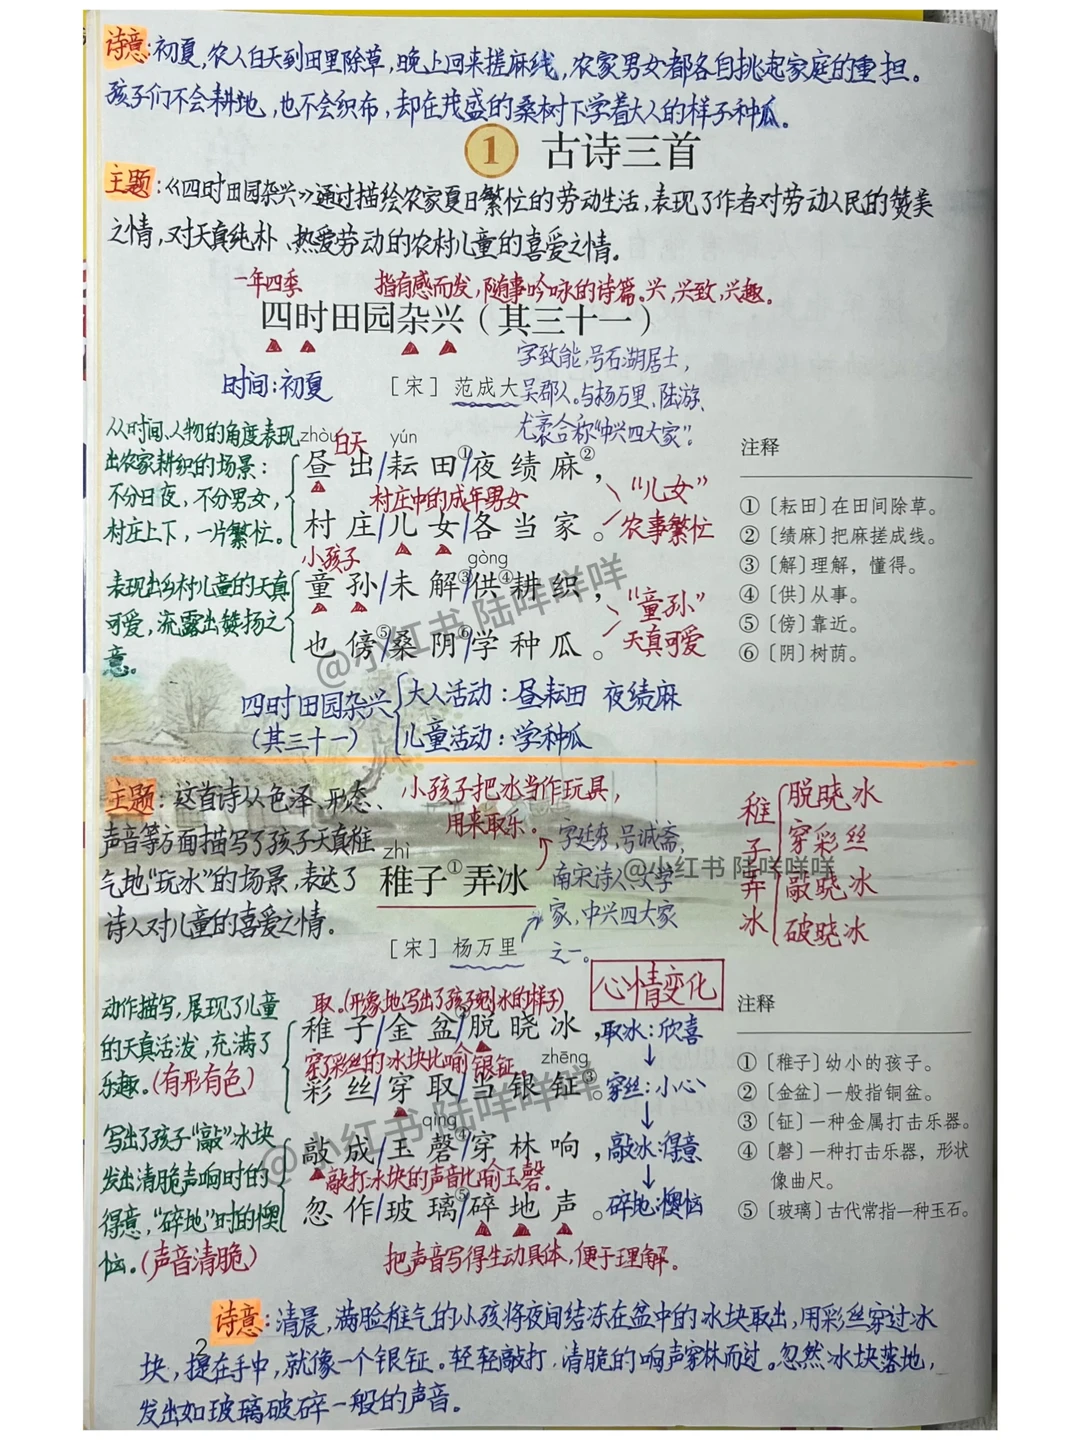 诗意:初夏,农人白天到田里除草,晚上回来搓麻线,农家男女都各自挑起家庭的重担。
孩子们不会耕地,也不会织布,却在茂盛的桑树下学着大人的样子种瓜。
1 古诗三首
主题:《四时田园杂兴》通过描绘农家夏日繁忙的劳动生活,表现了作者对劳动人民的赞美
之情,对天真纯朴、热爱劳动的农村儿童的喜爱之情。
一年四季 指有感而发,随事吟咏的诗篇。兴,兴致,兴趣。
四时田园杂兴(其三十一)
时间:初夏
[宋] 范成大
字致能,号石湖居士,
吴郡人。与杨万里、陆游、
尤袤合称“中兴四大家”。
从时间、人物的角度表现
出农家耕织的场景:
不分日夜,不分男女,
村庄上下,一片繁忙。
zhòu 白天 yún
昼出/耘田①/夜绩麻②,
村庄中的成年男女
村庄/儿女/各当家。
“儿女”
农事繁忙
表现出乡村儿童的天真
可爱,流露出赞扬之
意。
小孩子 gòng
童孙/未解③/供④耕织,
也傍⑤/桑阴⑥/学种瓜。
“童孙”
天真可爱
注释
①〔耘田〕在田间除草。
②〔绩麻〕把麻搓成线。
③〔解〕理解,懂得。
④〔供〕从事。
⑤〔傍〕靠近。
⑥〔阴〕树荫。
@小红书 陆咩咩咩
四时田园杂兴
(其三十一)
大人活动:昼耘田 夜绩麻
儿童活动:学种瓜
主题:这首诗从色泽、形态、
声音等方面描写了孩子天真稚
气地“玩冰”的场景,表达了
诗人对儿童的喜爱之情。
小孩子把冰当作玩具,
用来取乐。
zhì
稚子①弄冰
[宋] 杨万里
字廷秀,号诚斋,
南宋诗人、文学
家,中兴四大家
之一。
稚子弄冰
脱晓冰
穿彩丝
敲晓冰
破晓冰
@小红书 陆咩咩咩
心情变化
动作描写,展现了儿童
的天真活泼,充满了
乐趣。(有形有色)
取。(形象地写出了孩子剜冰的样子)
稚子/金盆②/脱晓冰,
穿了彩丝的冰块比喻银钲。 zhēng
彩丝/穿取/当银钲③。
写出了孩子“敲”冰块
发出清脆声响时的
得意,“碎地”时的懊
恼。(声音清脆)
qìng
敲成/玉磬④/穿林响,
敲打冰块的声音比喻玉磬。
忽作/玻璃⑤/碎地声。
把声音写得生动具体,便于理解。
取冰:欣喜
穿丝:小心
敲冰:得意
碎地:懊恼
注释
①〔稚子〕幼小的孩子。
②〔金盆〕一般指铜盆。
③〔钲〕一种金属打击乐器。
④〔磬〕一种打击乐器,形状
像曲尺。
⑤〔玻璃〕古代常指一种玉石。
@小红书 陆咩咩咩
诗意:清晨,满脸稚气的小孩将夜间结冻在盆中的冰块取出,用彩丝穿过冰
块,提在手中,就像一个银钲。轻轻敲打,清脆的响声穿林而过。忽然冰块落地,
发出如玻璃破碎一般的声音。
2